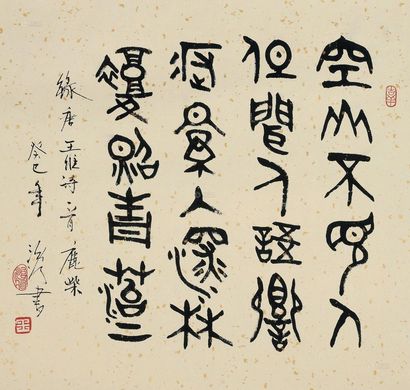 空山不見人
但聞人語響
返景入深林
復照青苔上
錄唐王維詩一首 鹿柴
癸巳年
書